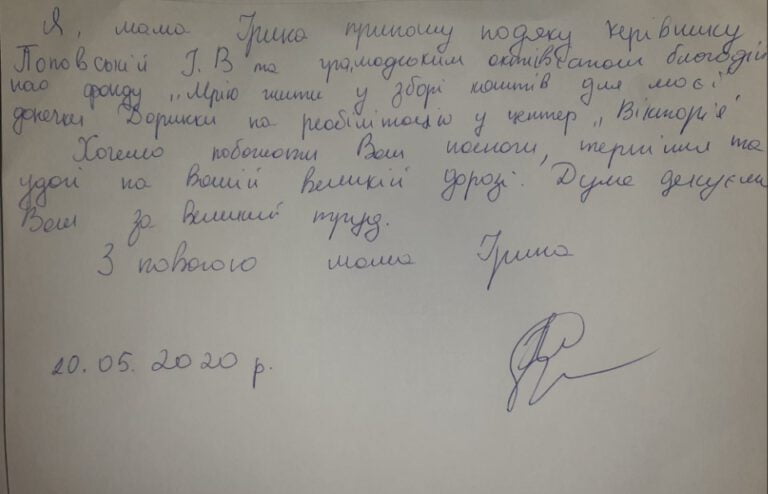 Я, мама Ірина приношу подяку керівнику
Поповській І. В та громадським активістам благодій
ного фонду „Мрію жити у зборі коштів для моєї
донечки Даринки на реабілітацію у центер „Вікторія"
Хочемо побажати Вам наснаги, терпіння та
удачі на Вашій великій дорозі. Дуже дякуєм
Вам за великий труд.
З повагою мама Ірина
20.05.2020 р.